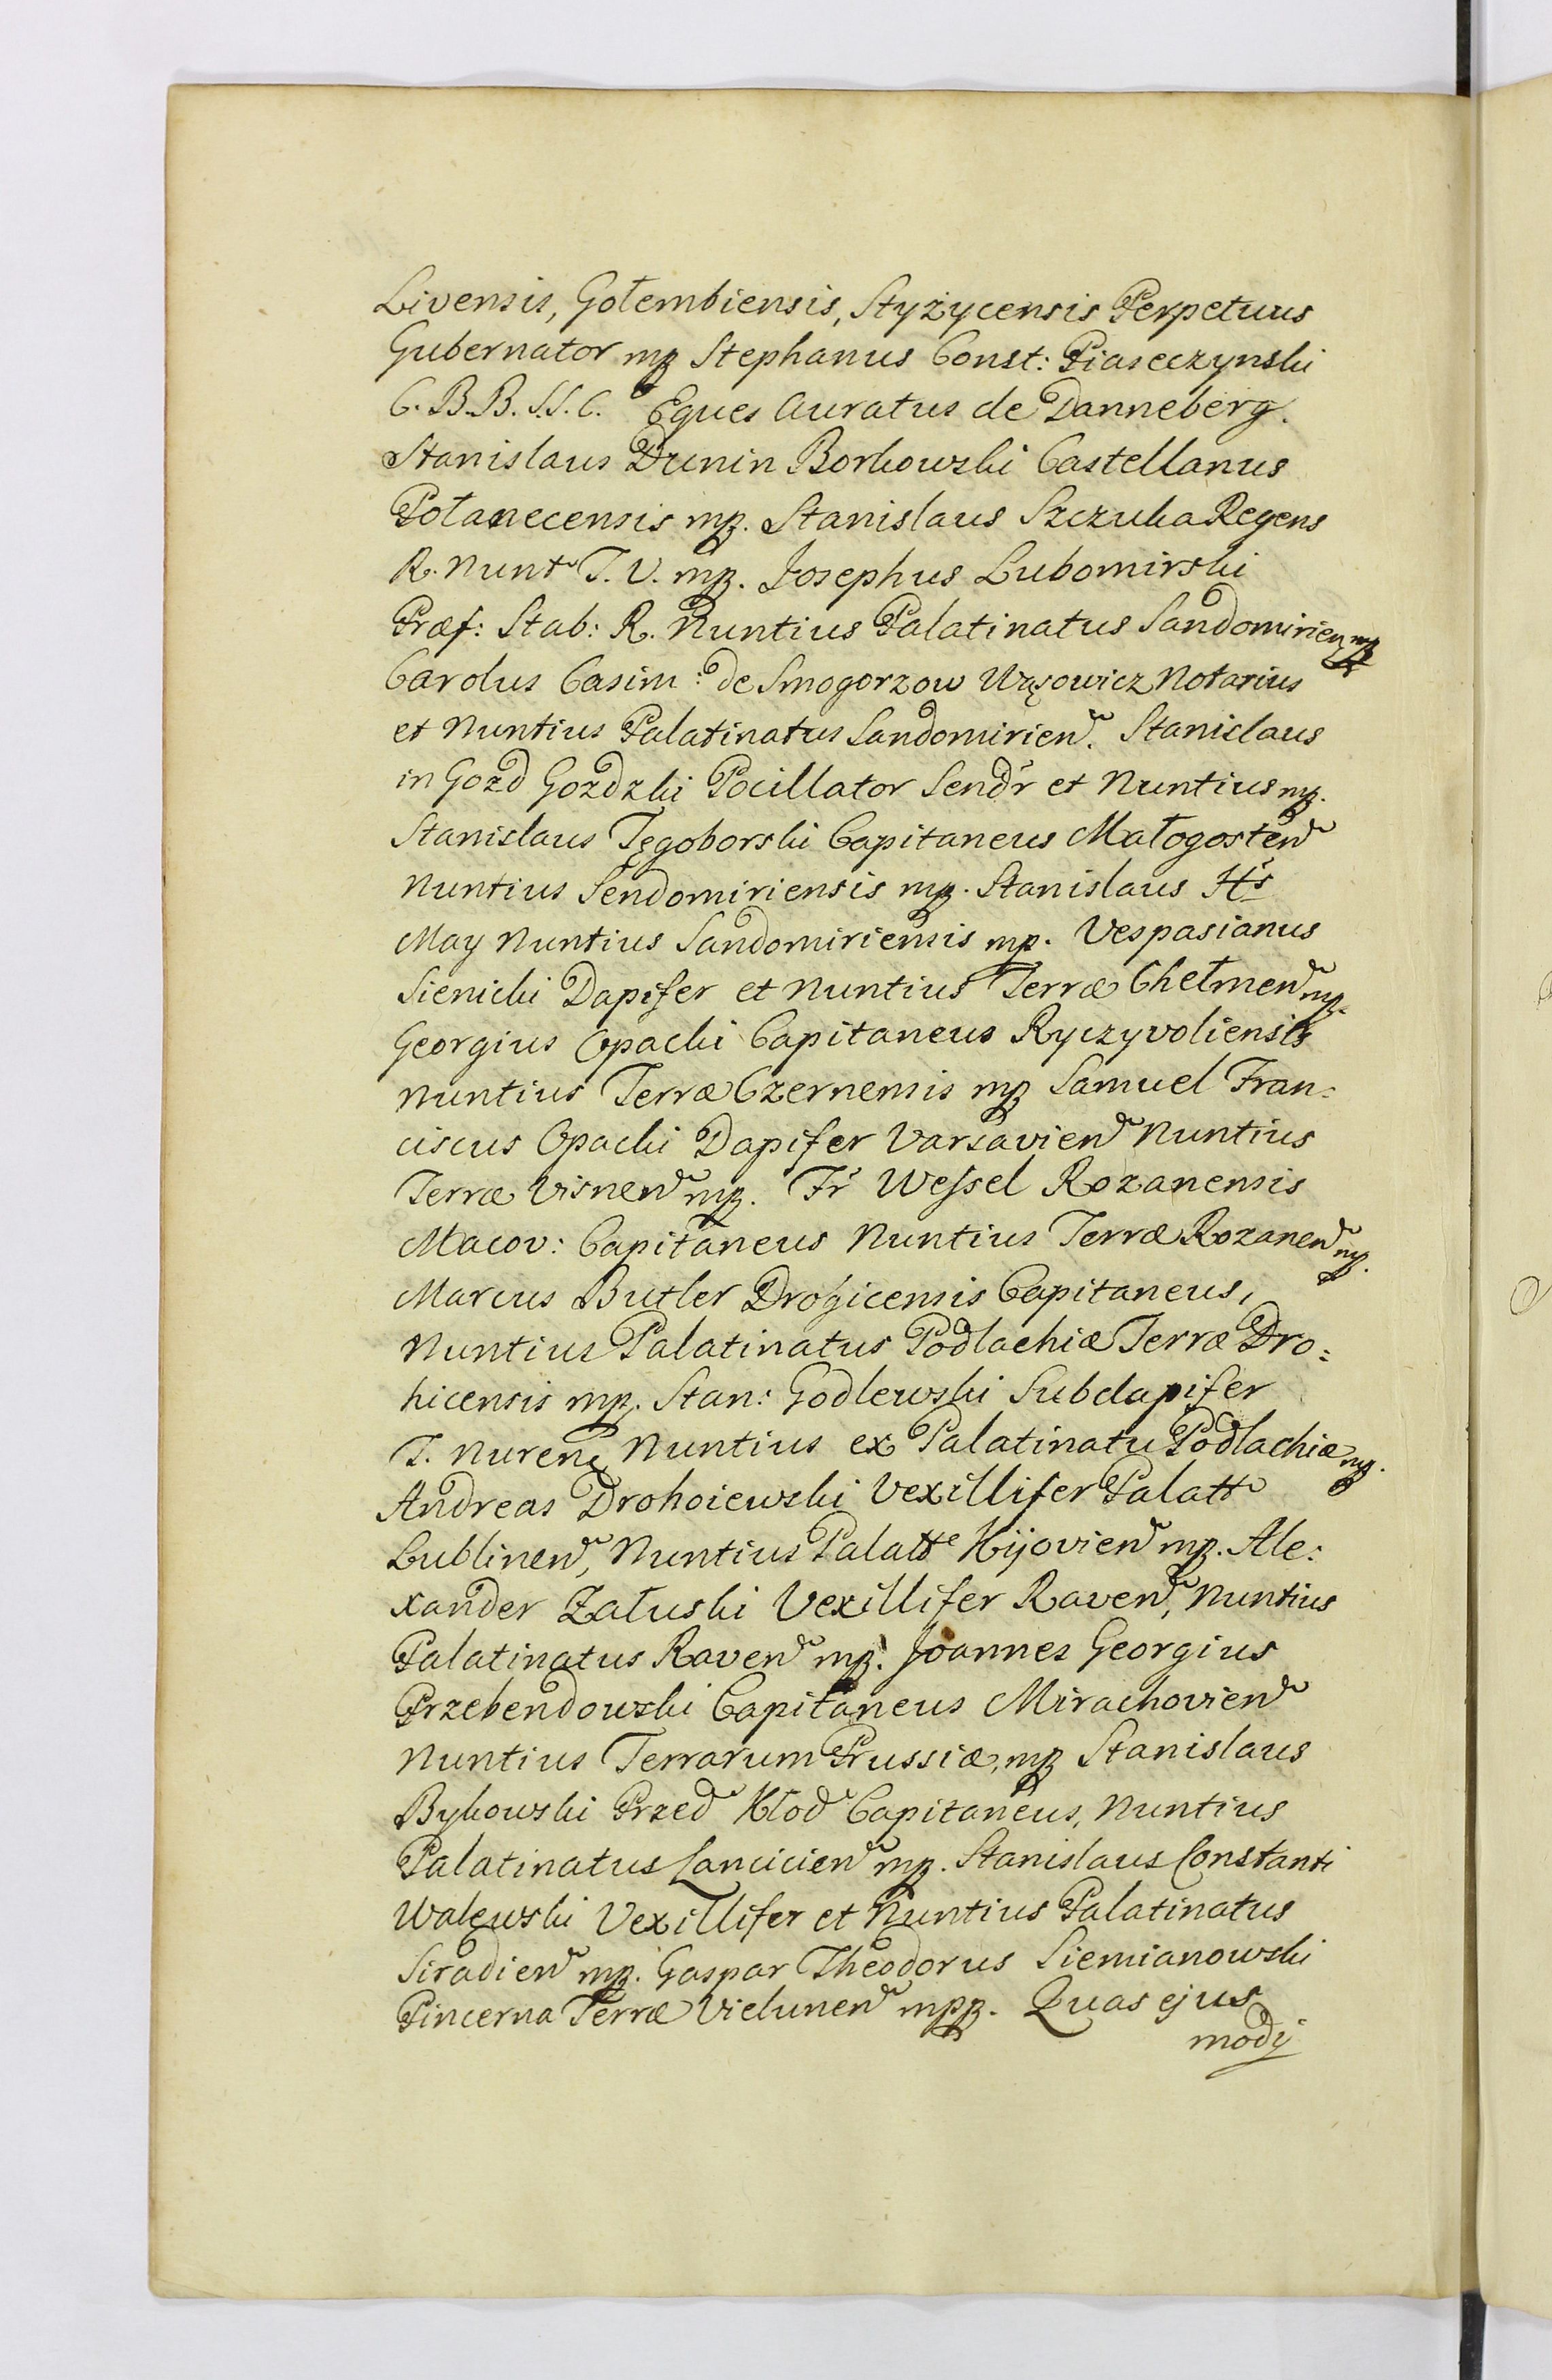 Livensis, Gołembiensis, Styżycensis Perpetuus
Gubernator mp Stephanus Const: Piaseczynski
C. B. B. S. S. C. Eques Auratus de Danneberg.
Stanislaus Dunin Borkowski Castellanus
Połanecensis mp. Stanislaus Szczuka Regens
R. Nunt T. V. mp. Josephus Lubomirski
Præf: Stab: R. Nuntius Palatinatus Sandomirien mp
Carolus Casim: de Smogorzow Wąsowicz Notarius
et Nuntius Palatinatus Sandomirien. Stanislaus
in Gozd Gozdzki Pocillator Sendr et Nuntius mp.
Stanislaus Tęgoborski Capitaneus Małogosten
Nuntius Sendomiriensis mp. Stanislaus
May Nuntius Sandomiriensis mp. Vespasianus
Sienicki Dapifer et Nuntius Terræ Chełmen mp.
Georgius Opacki Capitaneus Ryczyvoliensis
Nuntius Terræ Czernensis mp Samuel Fran:
ciscus Opacki Dapifer Varsavien Nuntius
Terræ Visnen mp. Fr Wessel Rozanensis
Macov: Capitaneus Nuntius Terræ Rozanen mp.
Marcus Butler Drohicensis Capitaneus,
Nuntius Palatinatus Podlachiæ Terræ Dro:
hicensis mp. Stan: Godlewski Subdapifer
T. Nuren Nuntius ex Palatinatu Podlachiæ mp.
Andreas Drohoiewski Vexillifer Palatt
Lublinen, Nuntius Palatt Kijovien mp. Ale:
xander Załuski Vexillifer Raven, Nuntius
Palatinatus Raven mp. Joannes Georgius
Przebendowski Capitaneus Mirachovien
Nuntius Terrarum Prussiæ, mp Stanislaus
Bykowski Przed Kłod Capitaneus, Nuntius
Palatinatus Lancicien mp. Stanislaus Constanti
Walewski Vexillifer et Nuntius Palatinatus
Siradien mp. Gaspar Theodorus Siemianowski
Pincerna Terræ Vielunen mpp. Quas ejus
modj